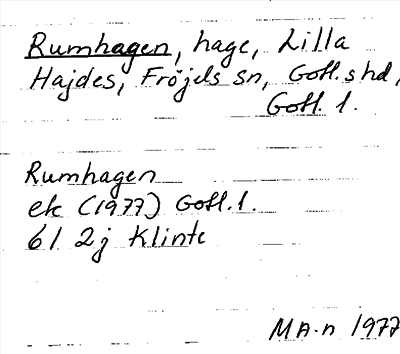 Rumhagen, hage, Lilla
Hajdes, Fröjels sn, Gotl. s hd,
Gotl. l.
Rumhagen
ek (1977) Gotl. l.
6 I 2j Klinte
MA-n 1977